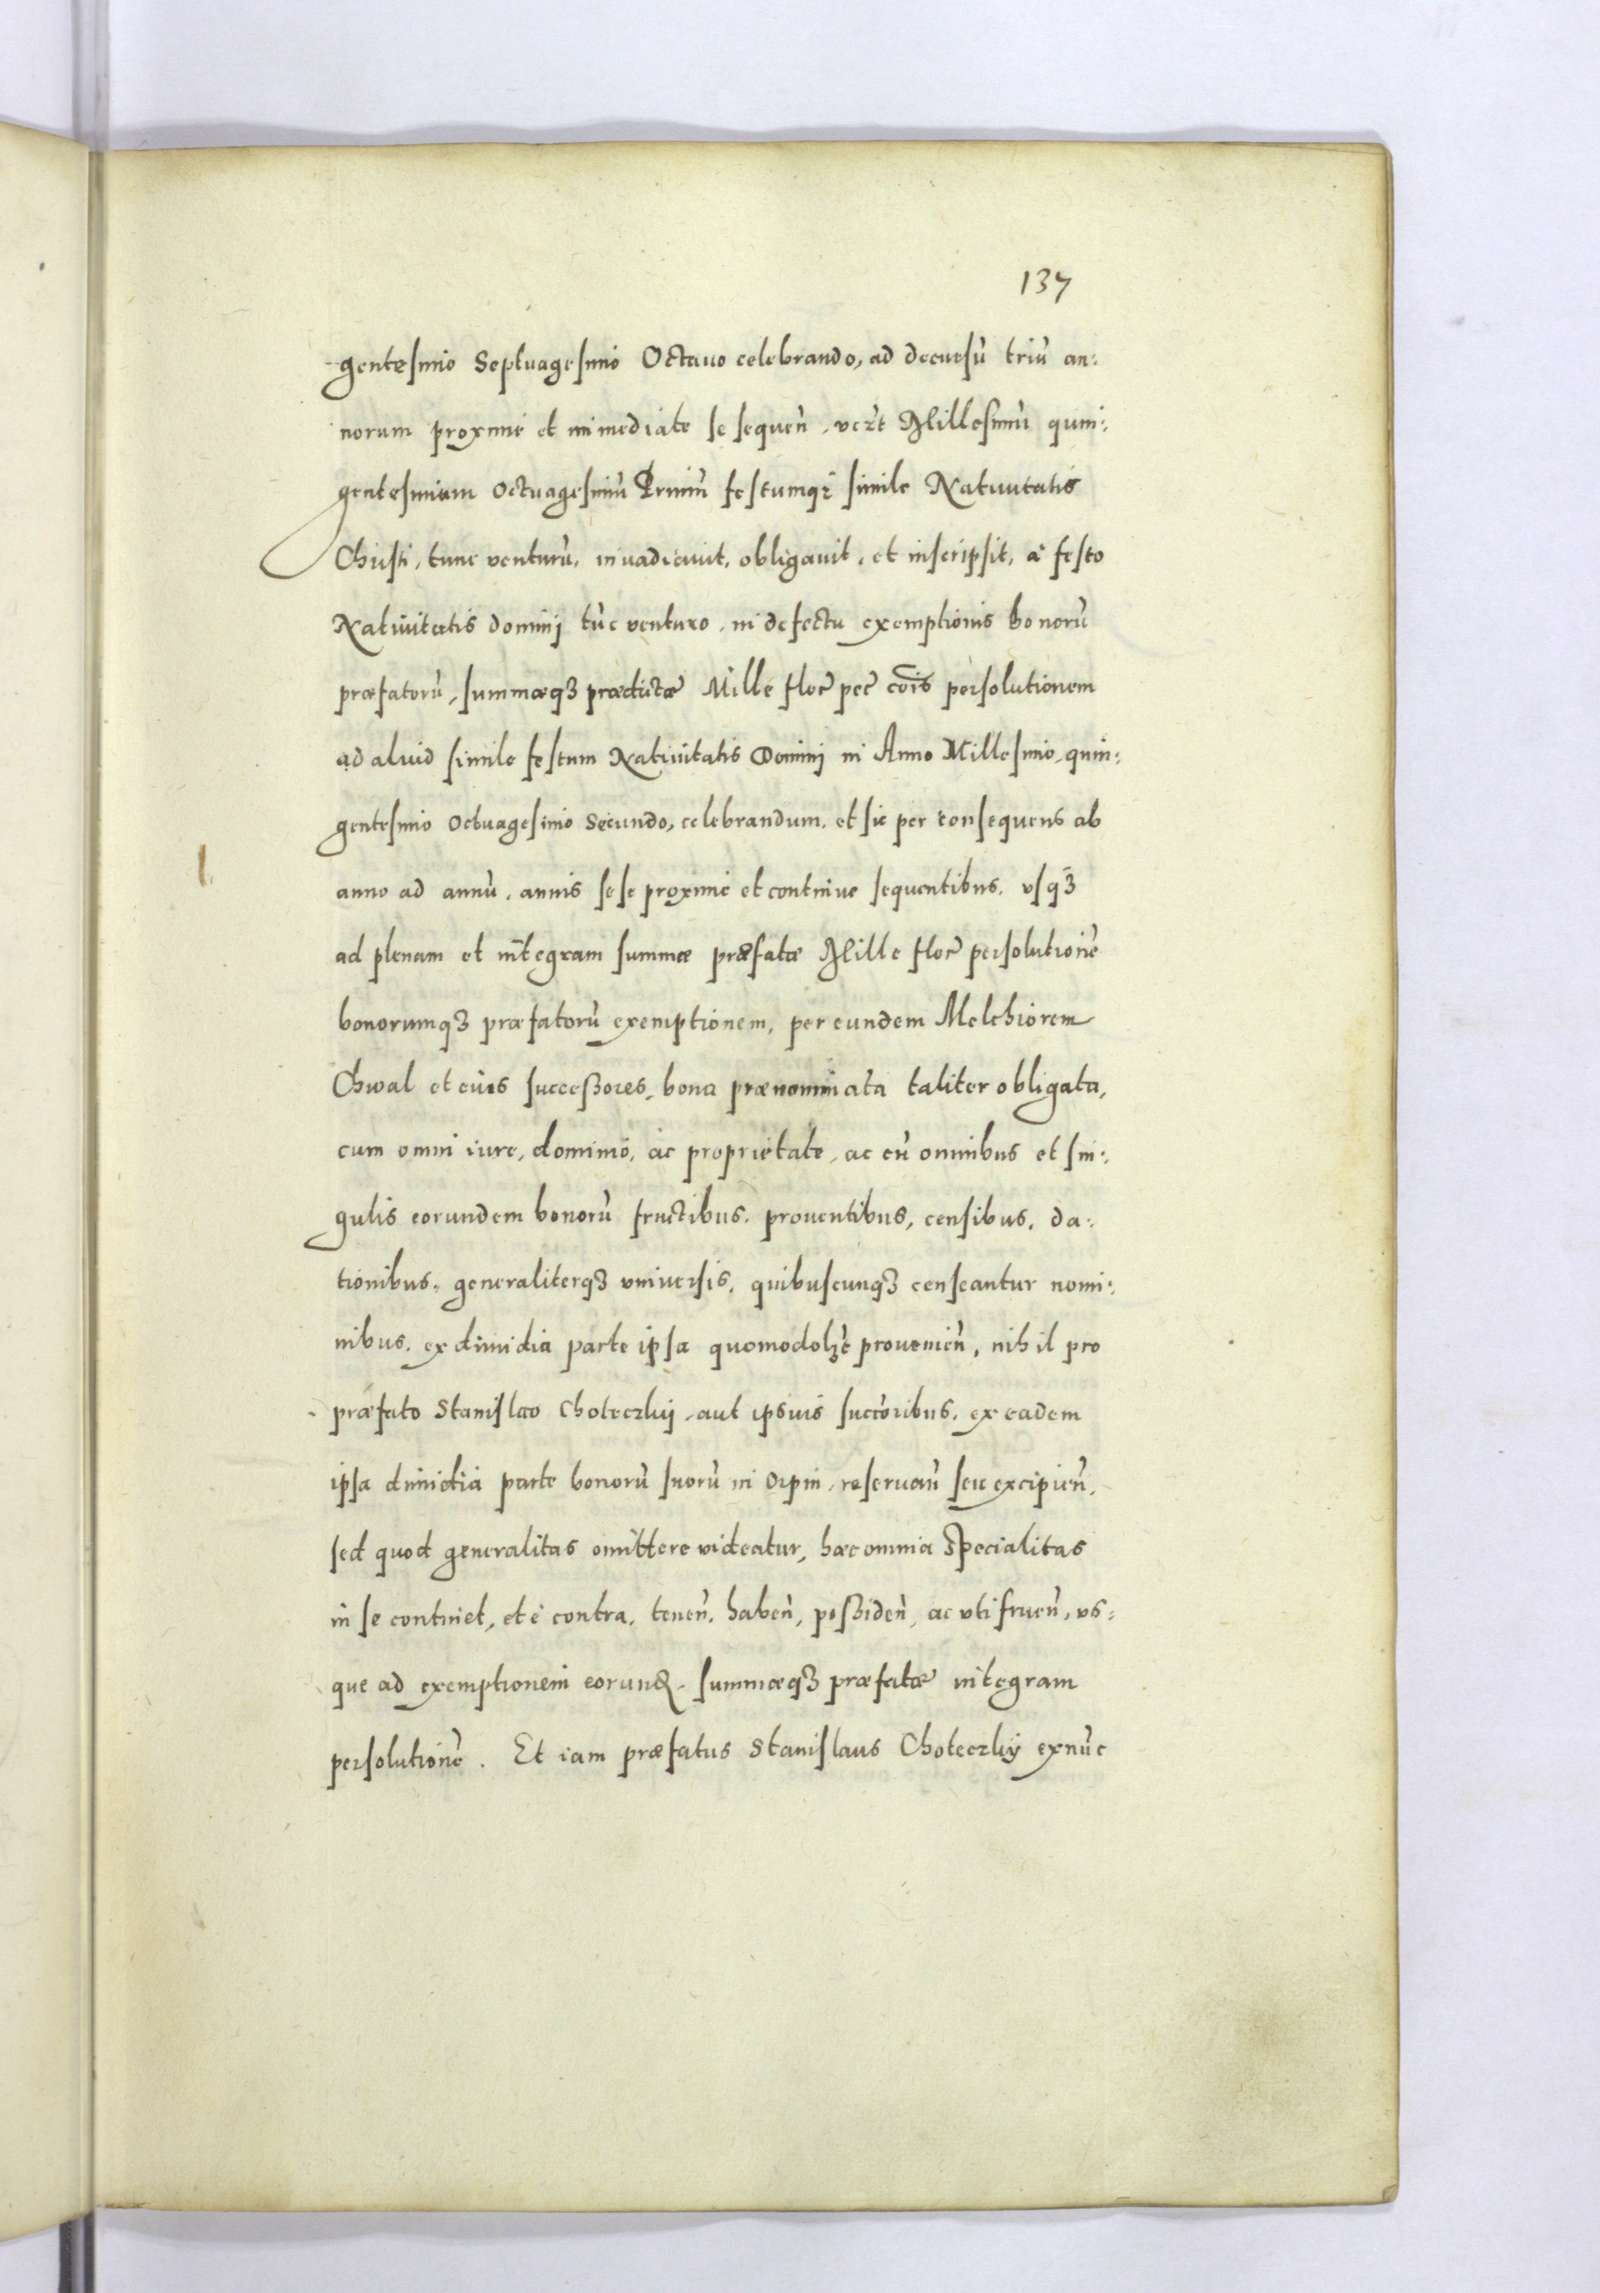 137
gentesimo Septuagesimo Octauo celebrando, ad decursũ triũ an:
norum proxime et immediate se sequeñ, verſt Millesimũ quin:
gentesimum octuagesimũ Primũ festumqꝫ simile Natiuitatis
Christi, tunc venturũ, inuadiauit, obligauit, et inscripsit, á festo
Natiuitatis dominj tũc venturo, in defectu exemptionis bonorũ
præfatorũ, summæqꝫ prædictæ Mille floꝛ pec cõis persolutionem
ad aliud simile festum Natiuitatis Dominj in Anno Millesimo, quin:
gentesimo octuagesimo secundo, celebrandum, et sic per consequens ab
anno ad annũ, annis sese proxime et continue sequentibus, vsqꝫ
ad plenam et integram summæ præfatæ Mille floꝛ persolutionẽ
bonorumqꝫ præfatorũ exemptionem, per eundem Melchiorem
Chwal et eius successores, bona prænominata taliter obligata,
cum omni iure, dominio, ac proprietate, ac cũ omnibus et sin:
gulis eorundem bonorũ fructibus, prouentibus, censibus, da:
tionibus, generaliterqꝫ vniuersis, quibuscunqꝫ censeantur nomi:
nibus, ex dimidia parte ipsa quomodolꝫt prouenieñ, nihil pro
præfato Stanislao Choteczkij, aut ipsius succõribus, ex eadem
ipsa dimidia parte bonorũ suorũ in Orpin, reseruañ seu excipieñ,
sed quod generalitas omittere videatur, hæc omnia specialitas
in se continet, et è contra, teneñ, habeñ, possideñ, ac vti frueñ, vs:
que ad exemptionem eorunꝗ, summæqꝫ præfatæ integram
persolutionẽ. Et iam præfatus Stanislaus Choteczkij exnũc